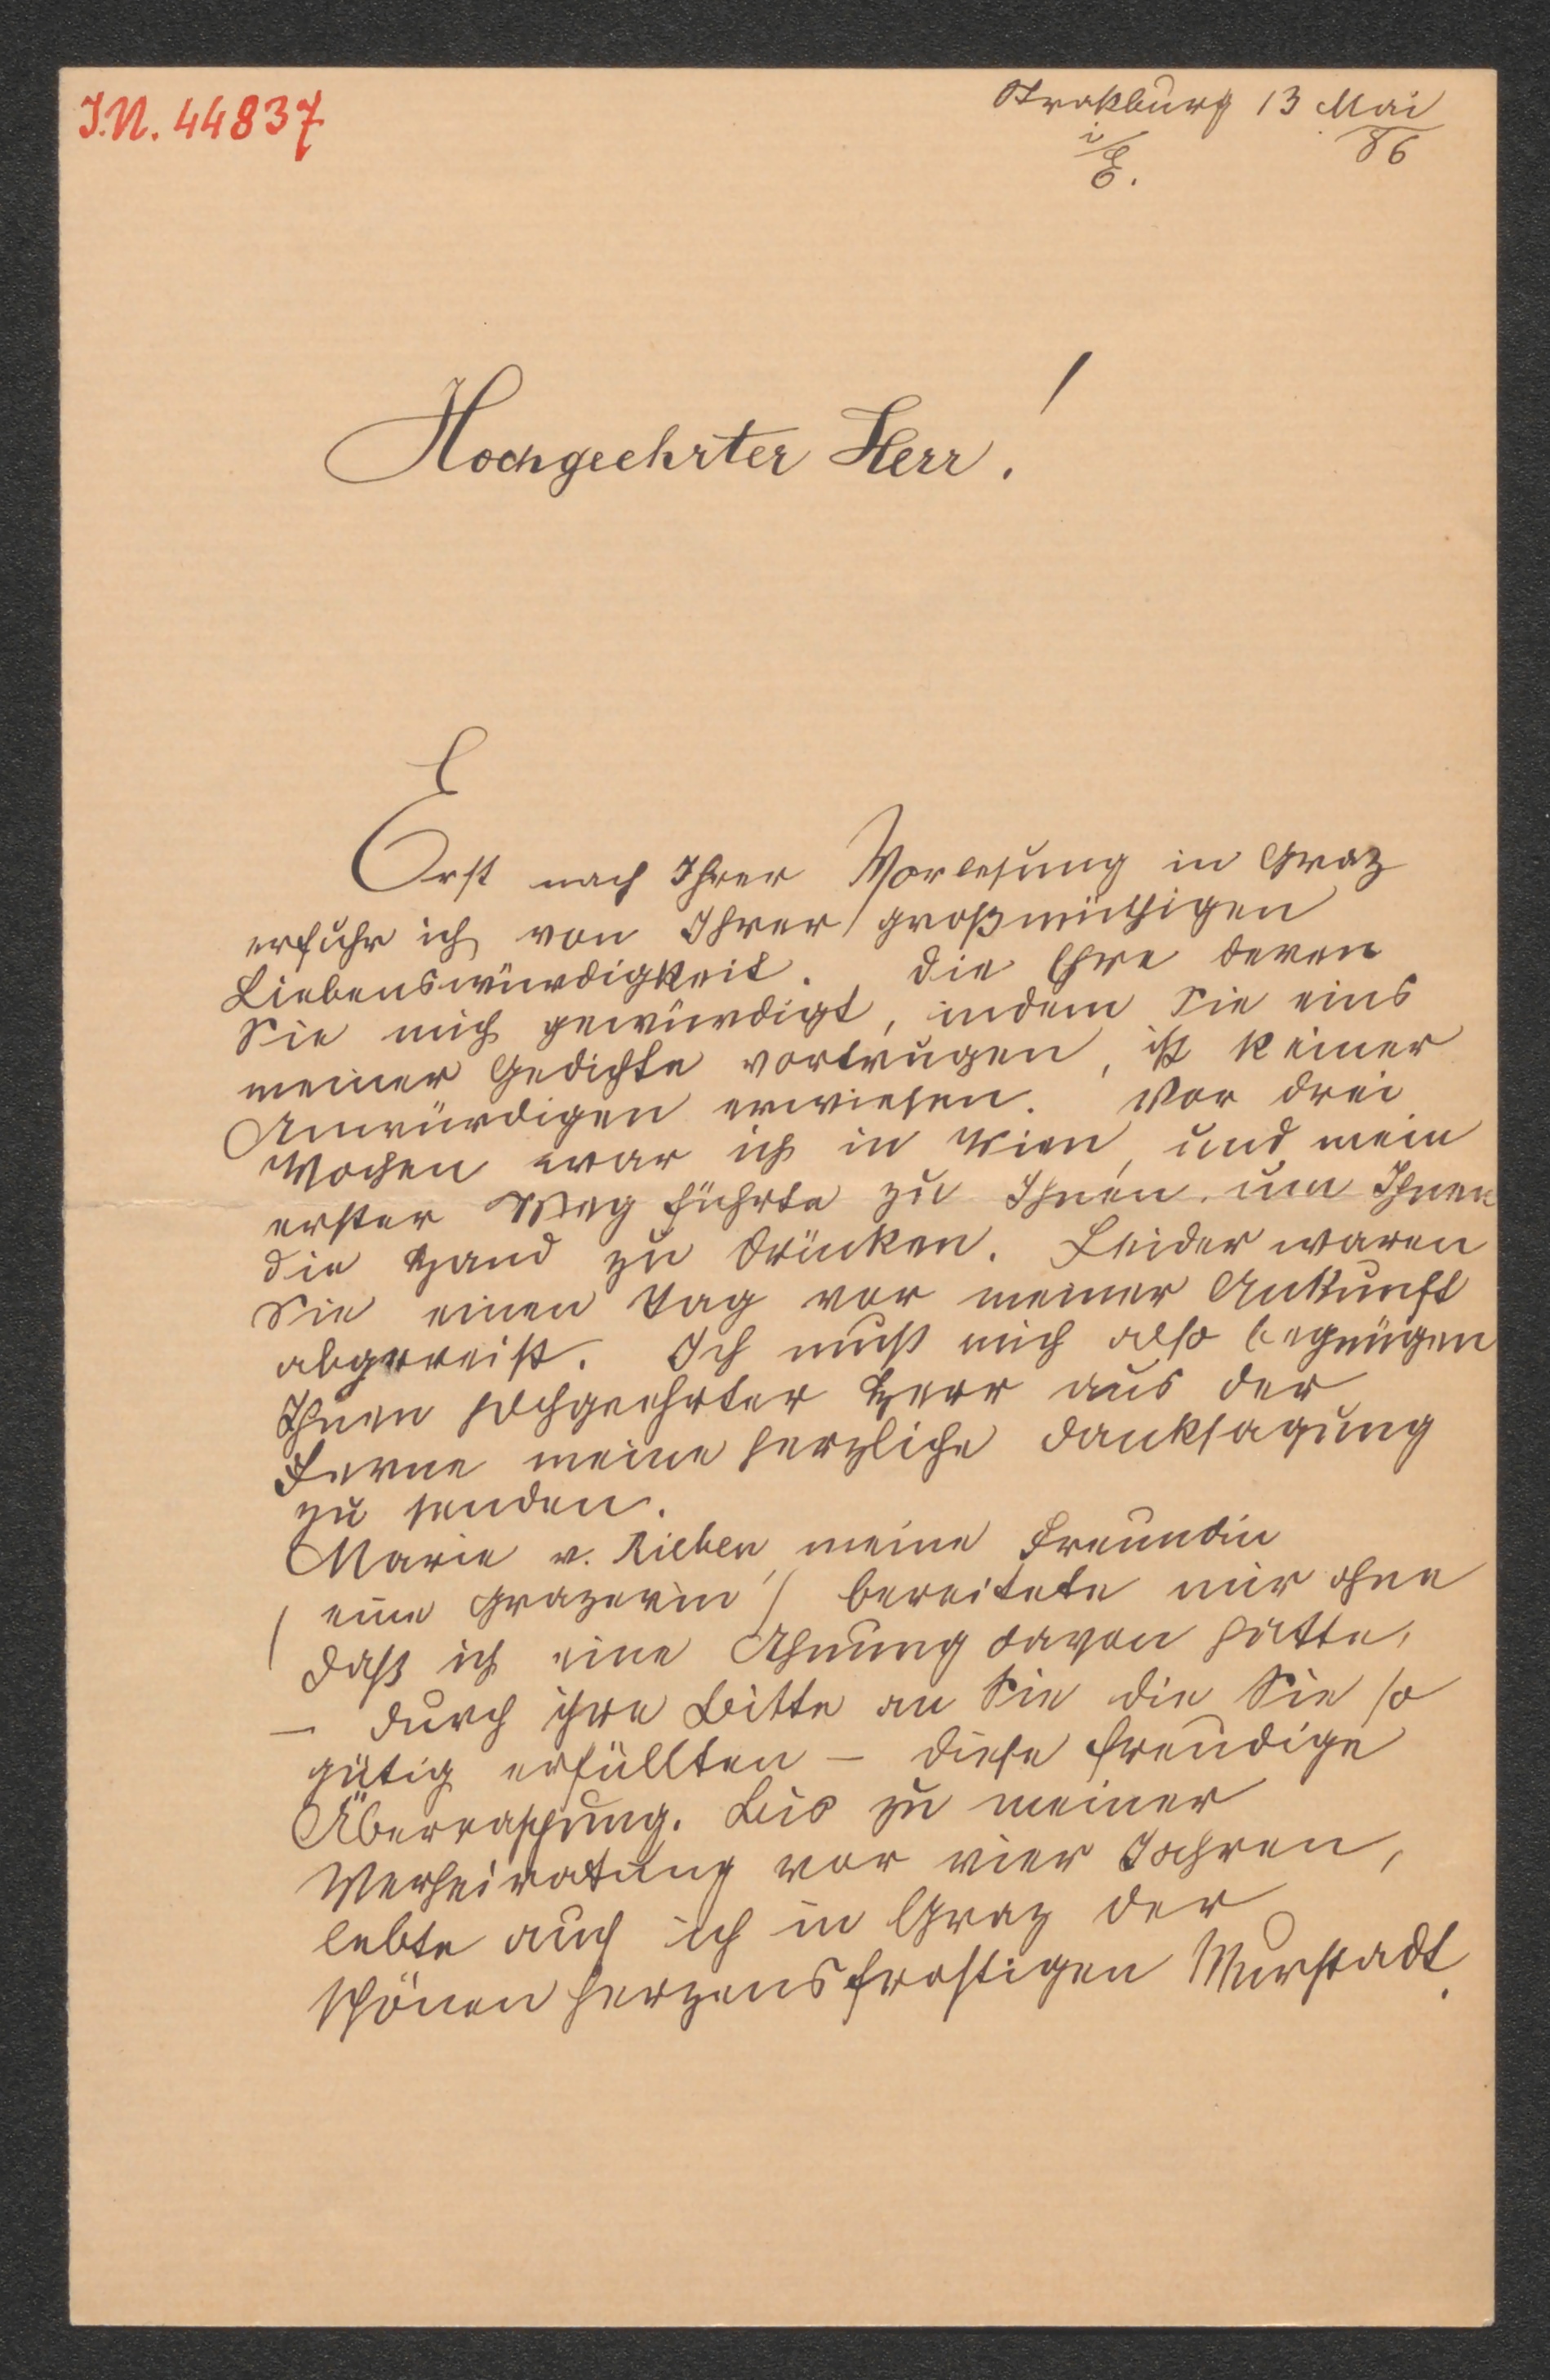 I.N. 44837
Straßburg 13 Mai
i/E. 86
Hochgeehrter Herr!
Erst nach Ihrer Vorlesung in Graz
erfuhr ich von Ihrer großmüthigen
Liebenswürdigkeit. Die Ehre deren
Sie mich gewürdigt, indem Sie eins
meiner Gedichte vortrugen, ist keiner
Unwürdigen erwiesen. Vor drei
Wochen war ich in Wien, und mein
erster Weg führte zu Ihnen. um Ihnen
die Hand zu drücken. Leider waren
Sie einen Tag vor meiner Ankunft
abgereist. Ich muß mich also begnügen
Ihnen hochgeehrter Herr aus der
Ferne meine herzliche Danksagung
zu senden.
Marie v. Rieben, meine Freundin
(eine Grazerin) bereitete mir ohne
daß ich eine Ahnung davon hatte,
– durch ihre Bitte an Sie die Sie so
gütig erfüllten – diese freudige
Überraschung. Bis zu meiner
Verheiratung vor vier Jahren,
lebte auch ich in Graz der
schönen herzensfrostigen Murstadt.